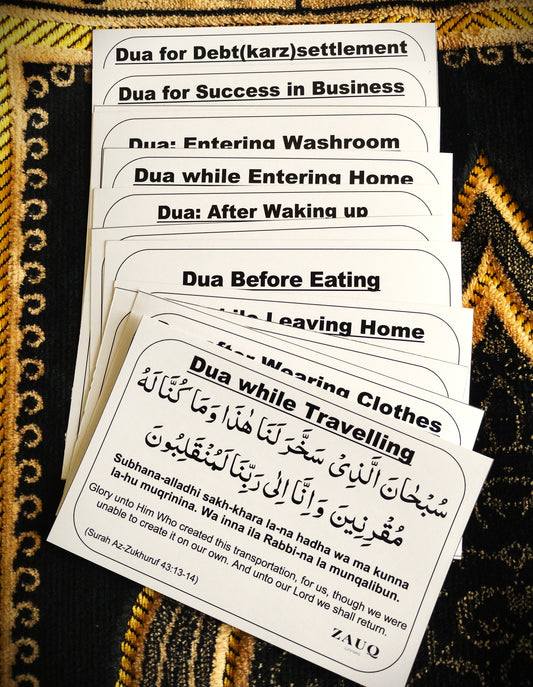 Dua for Debt(karz)settlement
Dua for Success in Business
Dua: Entering Washroom
Dua while Entering Home
Dua: After Waking up
Dua Before Eating
Leaving Home
After Wearing Clothes
Dua while Travelling
سُبْحَانَ الَّذِىْ سَخَّرَ لَنَا هٰذَا وَمَا كُنَّا لَهُ
مُقْرِنِينَ وَاِنَّا اِلٰى رَبِّنَا لَمُنْقَلِبُونَ
Subhana-alladhi sakh-khara la-na hadha wa ma kunna
la-hu muqrinina. Wa inna ila Rabbi-na la munqalibun.
Glory unto Him Who created this transportation, for us, though we were
unable to create it on our own. And unto our Lord we shall return.
(Surah Az-Zukhuruf 43:13-14)
ZAUQ